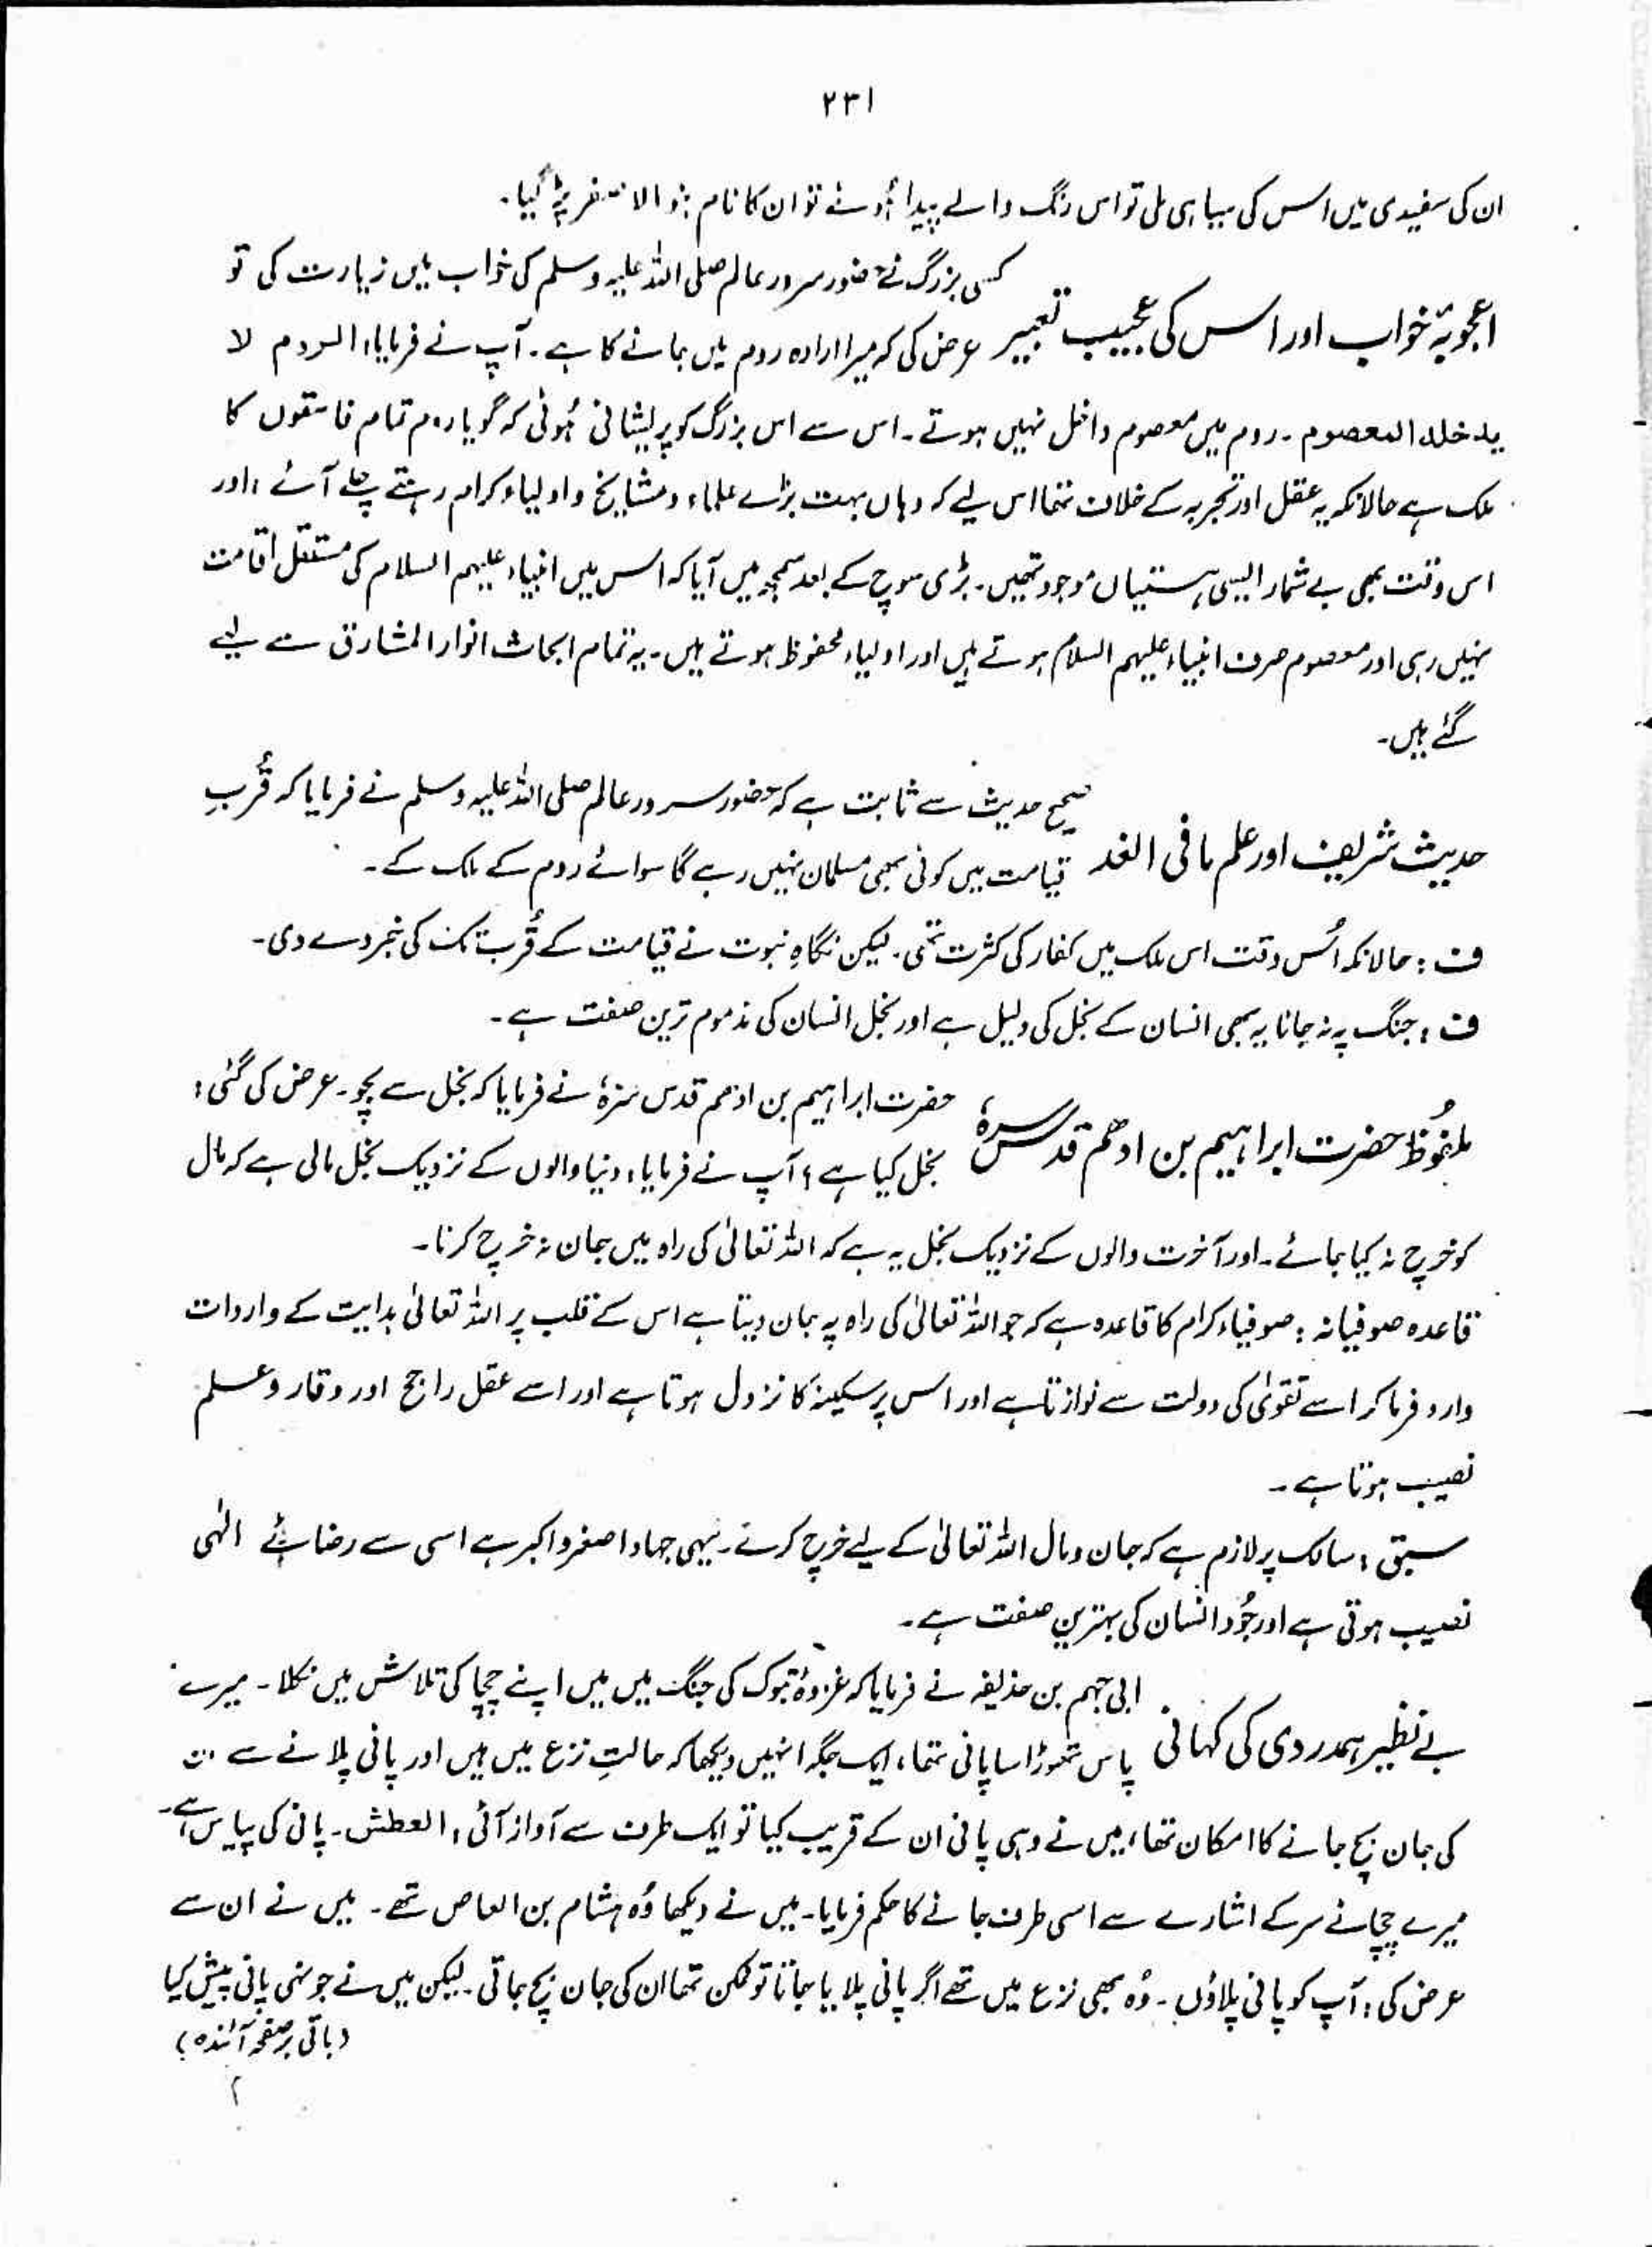 ۲۳۱
ان کی سفیدی میں اس کی سیاہی ملی تو اس رنگ والے پیدا ہوئے تو ان کا نام بنو الاصفر پڑ گیا۔
اعجوبۂ خواب اور اس کی عجیب تعبیر
کسی بزرگ نے حضور سرور عالم صلی اللہ علیہ وسلم کی خواب میں زیارت کی تو
عرض کی کہ میرا ارادہ روم میں جانے کا ہے۔ آپ نے فرمایا: الروم لا
یدخلہ المعصوم۔ روم میں معصوم داخل نہیں ہوتے۔ اس سے اس بزرگ کو پریشانی ہُوئی کہ گویا روم تمام فاسقوں کا
ملک ہے حالانکہ یہ عقل اور تجربہ کے خلاف تھا اس لیے کہ وہاں بہت بڑے علماء و مشایخ و اولیاء کرام رہتے چلے آئے، اور
اس وقت بھی بے شمار ایسی ہستیاں موجود تھیں۔ بڑی سوچ کے بعد سمجھ میں آیا کہ اس میں انبیاء علیہم السلام کی مستقل اقامت
نہیں رہی اور معصوم صرف انبیاء علیہم السلام ہوتے ہیں اور اولیاء محفوظ ہوتے ہیں۔ یہ تمام ابحاث انوار المشارق سے لیے
گئے ہیں۔
حدیث شریف اور علم مافی الغد
صحیح حدیث سے ثابت ہے کہ حضور سرور عالم صلی اللہ علیہ وسلم نے فرمایا کہ قُربِ
قیامت میں کوئی بھی مسلمان نہیں رہے گا سوائے روم کے ملک کے۔
ف : حالانکہ اُس وقت اس ملک میں کفار کی کثرت تھی۔ لیکن نگاہِ نبوت نے قیامت کے قُرب تک کی خبر دے دی۔
ف : جنگ پہ نہ جانا یہ بھی انسان کے بخل کی دلیل ہے اور بخل انسان کی مذموم ترین صفت ہے۔
ملفُوظ حضرت ابراہیم بن ادھم قدس سرہٗ
حضرت ابراہیم بن ادھم قدس سرہٗ نے فرمایا کہ بخل سے بچو۔ عرض کی گئی :
بخل کیا ہے ؟ آپ نے فرمایا : دنیا والوں کے نزدیک بخل مالی ہے کہ مال
کو خرچ نہ کیا جائے۔ اور آخرت والوں کے نزدیک بخل یہ ہے کہ اللہ تعالیٰ کی راہ میں جان نہ خرچ کرنا۔
قاعدہ صوفیانہ : صوفیاء کرام کا قاعدہ ہے کہ جو اللہ تعالیٰ کی راہ پہ جان دیتا ہے اس کے قلب پر اللہ تعالیٰ ہدایت کے واردات
وارد فرما کر اسے تقویٰ کی دولت سے نوازتا ہے اور اس پر سکینہ کا نزول ہوتا ہے اور اسے عقل راجح اور وقار و علم
نصیب ہوتا ہے۔
سبق : سالک پر لازم ہے کہ جان و مال اللہ تعالیٰ کے لیے خرچ کرے۔ یہی جہاد اصغر و اکبر ہے اسی سے رضائے الٰہی
نصیب ہوتی ہے اور جُود انسان کی بہترین صفت ہے۔
بے نظیر ہمدردی کی کہانی
ابی جہم بن حذیفہ نے فرمایا کہ غزوۂ تبوک کی جنگ میں میں اپنے چچا کی تلاش میں نکلا۔ میرے
پاس تھوڑا سا پانی تھا، ایک جگہ انہیں دیکھا کہ حالتِ نزع میں ہیں اور پانی پلانے سے
کی جان بچ جانے کا امکان تھا، میں نے وہی پانی ان کے قریب کیا تو ایک طرف سے آواز آئی : العطش۔ پانی کی پیاس ہے۔
میرے چچا نے سر کے اشارے سے اسی طرف جانے کا حکم فرمایا۔ میں نے دیکھا وُہ ہشام بن العاص تھے۔ میں نے ان سے
عرض کی : آپ کو پانی پلاؤں۔ وُہ بھی نزع میں تھے اگر پانی پلایا جاتا تو ممکن تھا ان کی جان بچ جاتی۔ لیکن میں نے جونہی پانی پیش کیا
(باقی بر صفحہ آئندہ)